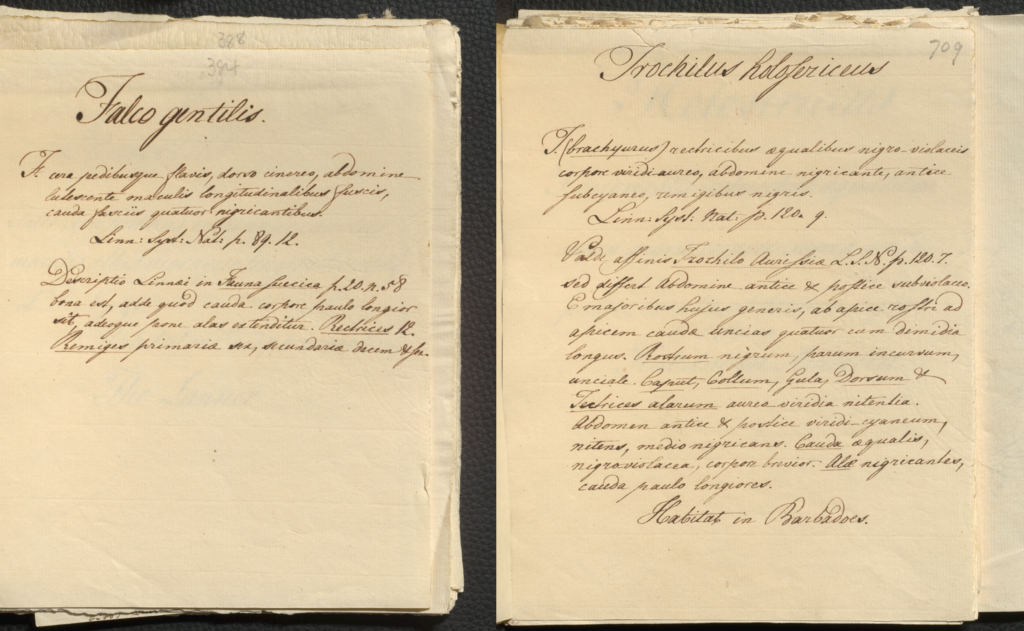 388
384
Falco gentilis.
F. cera pedibusque flavis, dorso cinereo, abdomine
lutescente maculis longitudinalibus fuscis,
cauda fasciis quatuor nigricantibus.
Linn: Syst: Nat: p. 89. 12.
Descriptio Linnæi in Fauna suecica p. 20. n. 58
bona est, adde quod cauda corpore paulo longior
sit, adeoque pone alas extenditur. Rectrices 12.
Remiges primariæ sex, secundariæ decem &
709
Trochilus holosericeus
T. (brachyurus) rectricibus æqualibus nigro-violaceis
corpore viridi-aureo, abdomine nigricante, antice
subcyaneo, remigibus nigris.
Linn: Syst: Nat: p. 120. 9.
Valde affinis Trochilo Aurissiæ L. S. N. p. 120. 7.
sed differt Abdomine antice & postice subviolaceo.
E majoribus hujus generis, ab apice rostri ad
apicem caudæ uncias quatuor cum dimidia
longus. Rostrum nigrum, parum incurvum,
unciale. Caput, Collum, Gula, Dorsum &
Tectrices alarum aureo viridia nitentia.
Abdomen antice & postice viridi-cyaneum,
nitens, medio nigricans. Cauda æqualis,
nigroviolacea, corpore brevior. Alæ nigricantes,
cauda paulo longiores.
Habitat in Barbadoes.